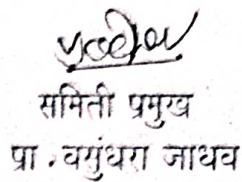 समिती प्रमुख
प्रा. वसुंधरा जाधव